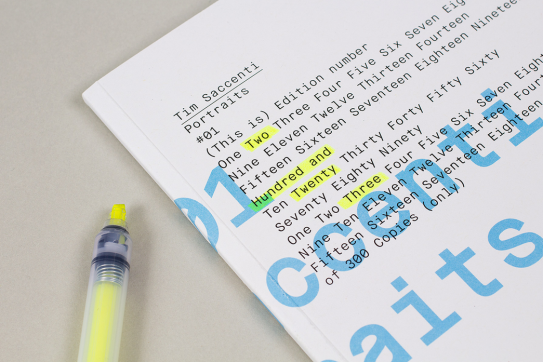 Tim Saccenti
Portraits
#01
(This is) Edition number
One Two Three Four Five Six Seven Eig
Nine Eleven Twelve Thirteen Fourteen
Fifteen Sixteen Seventeen Eighteen Ninetee
Hundred and
Ten Twenty Thirty Forty Fifty Sixty
Seventy Eighty Ninety
One Two Three Four Five Six Seven Eigh
Nine Ten Eleven Twelve Thirteen Four
Fifteen Sixteen Seventeen Eighteen
of 300 Copies (only)
01
ccenti
aits